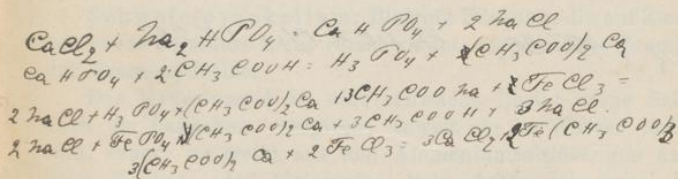 CaCl2 + Na2HPO4 = CaHPO4 + 2NaCl
CaHPO4 + 2CH3COOH = H3PO4 + (CH3COO)2Ca
2NaCl + H3PO4 + (CH3COO)2Ca + 3CH3COONa + FeCl3 =
2NaCl + FePO4 + (CH3COO)2Ca + 3CH3COOH + 3NaCl.
3(CH3COO)2Ca + 2FeCl3 = 3CaCl2 + 2Fe(CH3COO)3